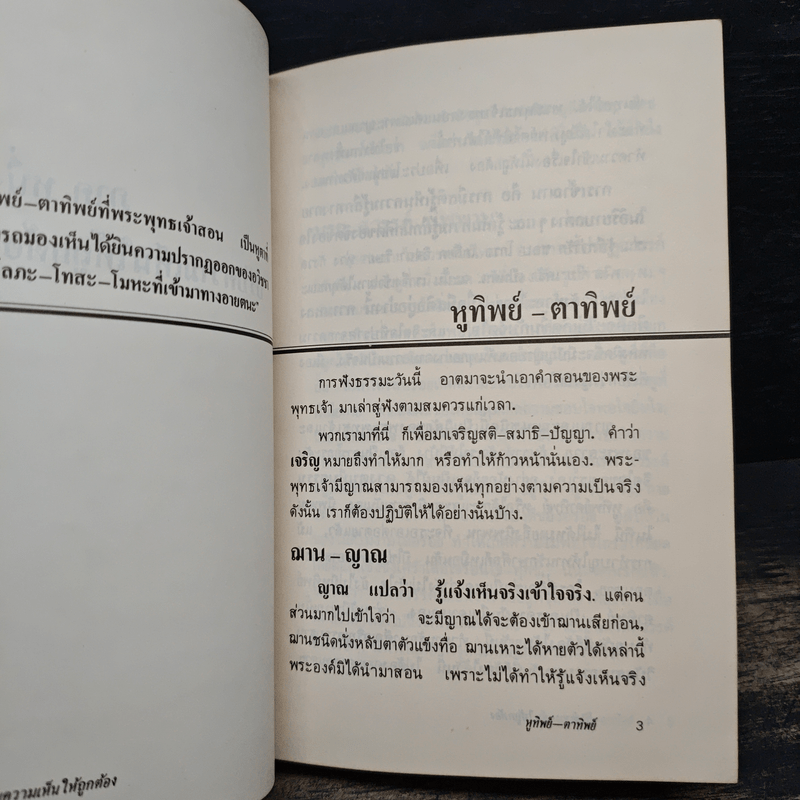 พย์–ตาทิพย์ที่พระพุทธเจ้าสอน เป็นหูตาที่
รถมองเห็นได้ยินความปรากฏออกของอวิชชา
ลภะ–โทสะ–โมหะที่เข้ามาทางอายตนะ"
ความเห็นให้ถูกต้อง
หูทิพย์ – ตาทิพย์
การฟังธรรมะวันนี้ อาตมาจะนำเอาคำสอนของพระ
พุทธเจ้า มาเล่าสู่ฟังตามสมควรแก่เวลา.
พวกเรามาที่นี่ ก็เพื่อมาเจริญสติ-สมาธิ-ปัญญา. คำว่า
เจริญ หมายถึงทำให้มาก หรือทำให้ก้าวหน้านั่นเอง. พระ-
พุทธเจ้ามีญาณสามารถมองเห็นทุกอย่างตามความเป็นจริง
ดังนั้น เราก็ต้องปฏิบัติให้ได้อย่างนั้นบ้าง.
ฌาน – ญาณ
ญาณ แปลว่า รู้แจ้งเห็นจริงเข้าใจจริง. แต่คน
ส่วนมากไปเข้าใจว่า จะมีญาณได้จะต้องเข้าฌานเสียก่อน,
ฌานชนิดนั่งหลับตาตัวแข็งทื่อ ฌานเหาะได้หายตัวได้เหล่านี้
พระองค์มิได้นำมาสอน เพราะไม่ได้ทำให้รู้แจ้งเห็นจริง
หูทิพย์–ตาทิพย์ 3